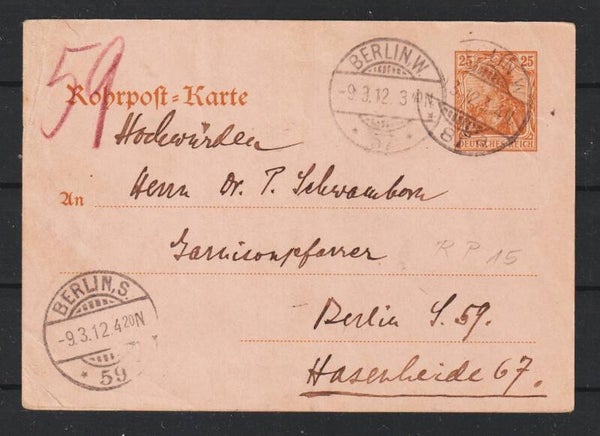 59
Rohrpost-Karte
BERLIN, W.
-9.3.12.3 40N
* 57 *
25 25
DEUTSCHES REICH
Hochwürden
An Herrn Dr. P. Schwamborn
Garnisonpfarrer
R P 15
Berlin S. 59.
Hasenheide 67.
BERLIN, S.
-9.3.12.4 20N
* 59